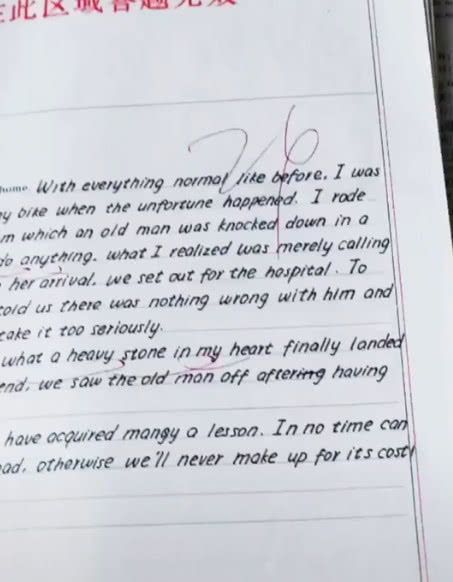 此区域答题无效
home. With everything normal like before, I was
y bike when the unfortune happened. I rode
m which an old man was knocked down in a
do anything. what I realized was merely calling
her arrival, we set out for the hospital. To
told us there was nothing wrong with him and
take it too seriously.
what a heavy stone in my heart finally landed
end, we saw the old man off aftering having
have acquired mangy a lesson. In no time can
ad, otherwise we'll never make up for its cost